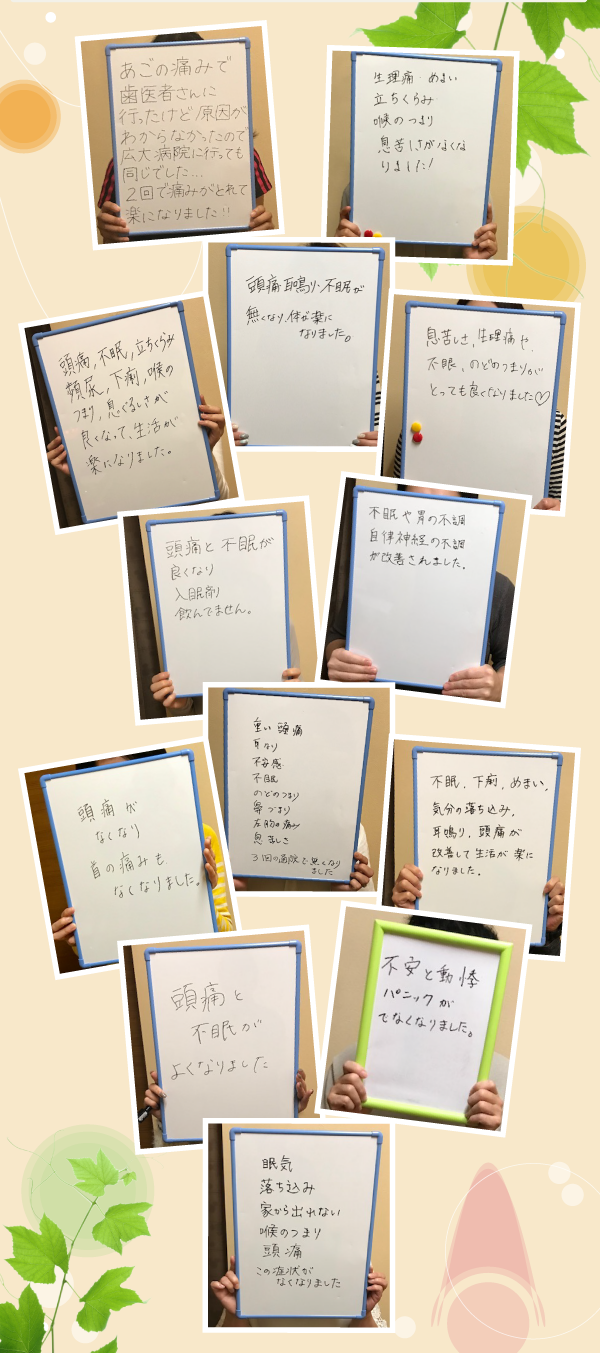 あごの痛みで
歯医者さんに
行ったけど原因が
わからなかったので
広大病院に行っても
同じでした…
2回で痛みがとれて
楽になりました!!
生理痛 めまい
立ちくらみ
喉のつまり
息苦しさがなくな
りました!
頭痛 耳鳴り・不眠が
無くなり、体が楽に
なりました。
頭痛,不眠,立ちくらみ
頻尿,下痢,喉の
つまり,息ぐるしさが
良くなって、生活が
楽になりました。
息苦しさ、生理痛や、
不眠、のどのつまりが
とっても良くなりました♡
頭痛と不眠が
良くなり
入眠剤
飲んでません。
不眠や胃の不調
自律神経の不調
が改善されました。
重い頭痛
耳なり
不安感
不眠
のどのつまり
鼻づまり
左肋の痛み
息苦しさ
3回の施術で無くなり
ました
頭痛が
なくなり
首の痛みも
なくなりました。
不眠、下痢、めまい、
気分の落ち込み、
耳鳴り、頭痛が
改善して生活が楽に
なりました。
頭痛と
不眠が
よくなりました
不安と動悸
パニックが
でなくなりました。
眠気
落ち込み
家から出れない
喉のつまり
頭痛
この症状が
なくなりました